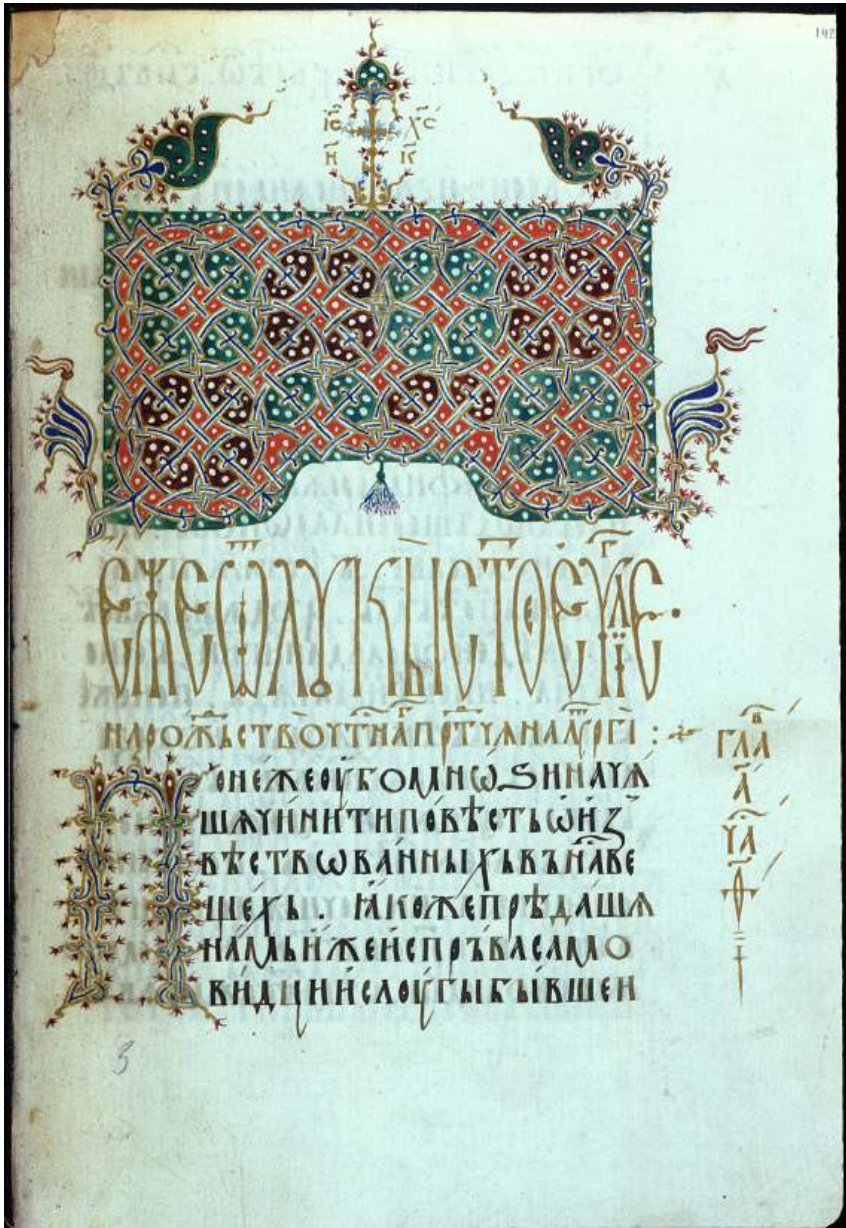 142
і҃с х҃с
н и к
є́жеѿлꙋкы̀ст҃оеѵ҃лїе
нарож҃ьство
понежеоу҆бомнѡѕиначѧ
шѧчи́нитипо́вѣстьѡи҆з
вѣствѡва́нныхъвъна́ве
ще́хь. ꙗ҆́кожепрѣда́шѧ
на́мьи҆́жеи҆спрьвасамо
ви́дциисло́угыбы́вшеи
гла в
3